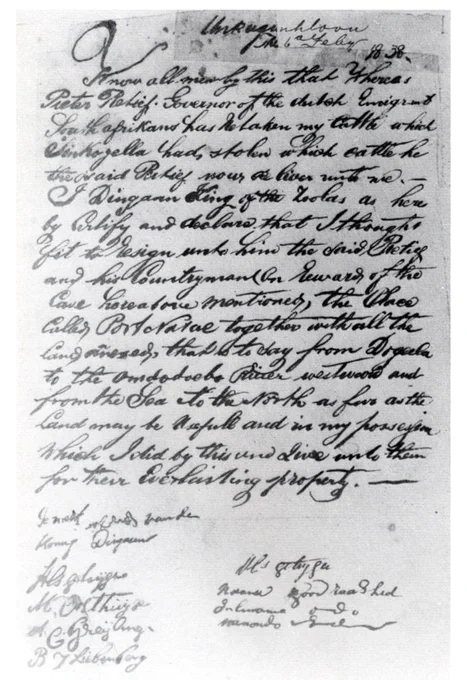 the 6th Feby
1838.
Know all men by this that Whereas
Pieter Retief. Governor of the dutch Emigrant
South afrikans has Retaken my Cattle which
had stolen which cattle he
the said Retief now deliver unto me. —
I Dingaan King of the Zoolas as here
by Certify and declare that I thought
fit to Resign unto him the said Retief
and his Countryman (on Reward of the
Case hereabove Mentioned) the Place
Called Port Natal together with all the
Land annexed, that is to say from Dogeela
to the River westward and
from the Sea to the North as far as the
Land may be Usefull and in my possession
Which I did by this and Give unto them
for their Everlasting property. —
de merk van de
Koning Dingaan
Als getuige
M Oosthuyse
A C Greyling
B J Liebenberg
Als getyge
Nwara groot raadslid
Juliwane do
Manondo